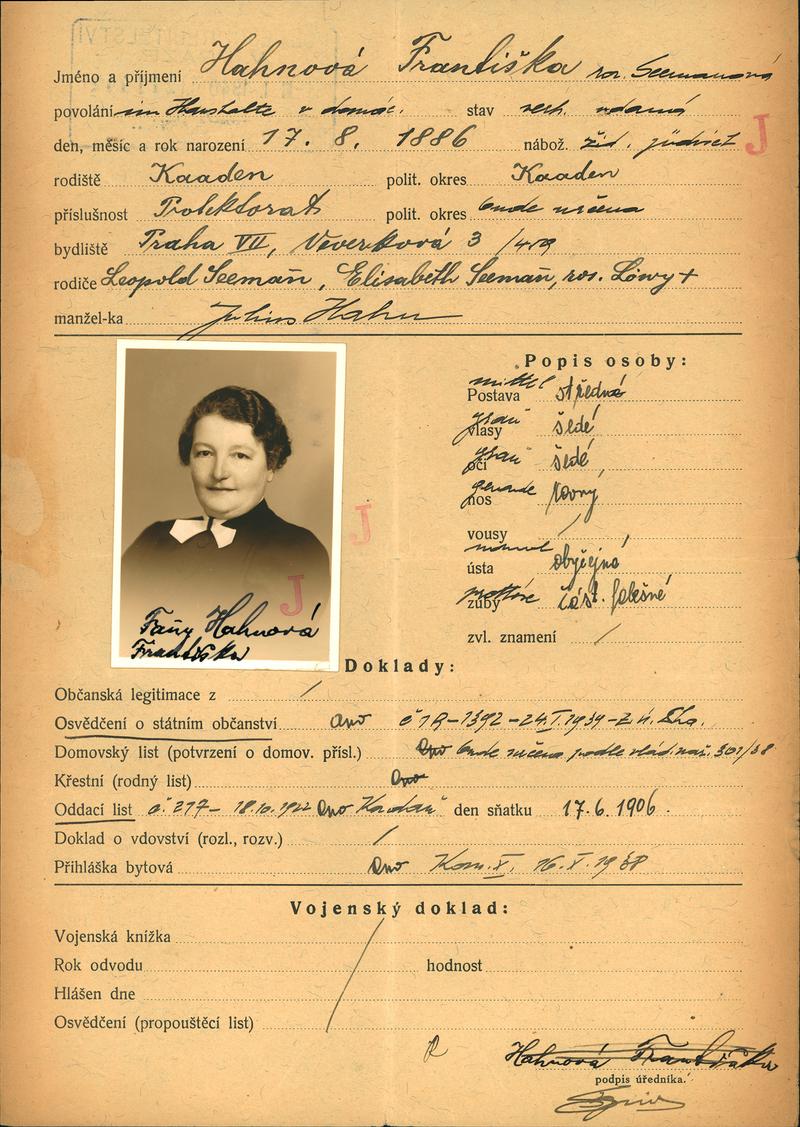 Jméno a příjmení Hahnová Františka roz. Seemanová
povolání im Haushalte v domác. stav vdaná
den, měsíc a rok narození 17. 8. 1886 nábož. žid. jüdisch J
rodiště Kaaden polit. okres Kaaden
příslušnost Protektorat polit. okres bude určena
bydliště Praha VII, Veverková 3 /419
rodiče Leopold Seemañ, Elisabeth Seemañ, roz. Löwy +
manžel-ka Julius Hahn
Popis osoby:
mittel
Postava středná
grau
vlasy šedé
grau
oči šedé
gerade
nos rovný
vousy /
normal
ústa obyčejná
zuby část. falešné
zvl. znamení /
J
J
Fañy Hahnová
Františka
Doklady:
Občanská legitimace z /
Osvědčení o státním občanství ano č 19-1392-24.I.1939-Z.ú.
Domovský list (potvrzení o domov. přísl.) ano bude určena podle vlád. nař. 301/38
Křestní (rodný list) ano
Oddací list č. 217- 18.10.1922 ano Kadaň den sňatku 17.6.1906.
Doklad o vdovství (rozl., rozv.) /
Přihláška bytová ano Kom. X. 16.X.1938
Vojenský doklad:
Vojenská knížka
Rok odvodu hodnost
Hlášen dne
Osvědčení (propouštěcí list)
R Hahnová Františka
podpis úředníka.